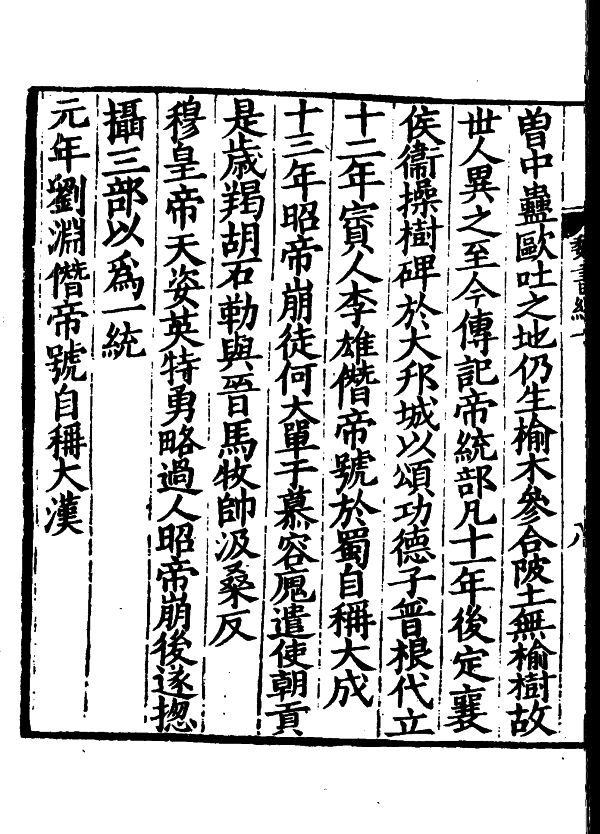 曽中蠱歐吐之地仍生榆木參合陂土無榆樹故
世人異之至今傳記帝統部凡十一年後定襄
侯衛操樹碑於大邗城以頌功德子普根代立
十二年賨人李雄僭帝號於蜀自稱大成
十三年昭帝崩徒何大單于慕容廆遣使朝貢
是歲羯胡石勒與晉馬牧帥汲桑反
穆皇帝天姿英特勇略過人昭帝崩後遂揔
攝三部以爲一統
元年劉淵僭帝號自稱大漢
八